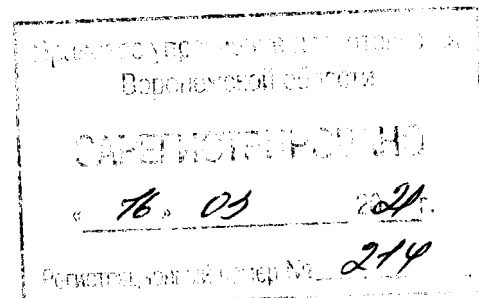 управление
Воронежской области
ЗАРЕГИСТРИРОВАНО
« 16 » 03 2021 г.
Регистрационный номер № 214